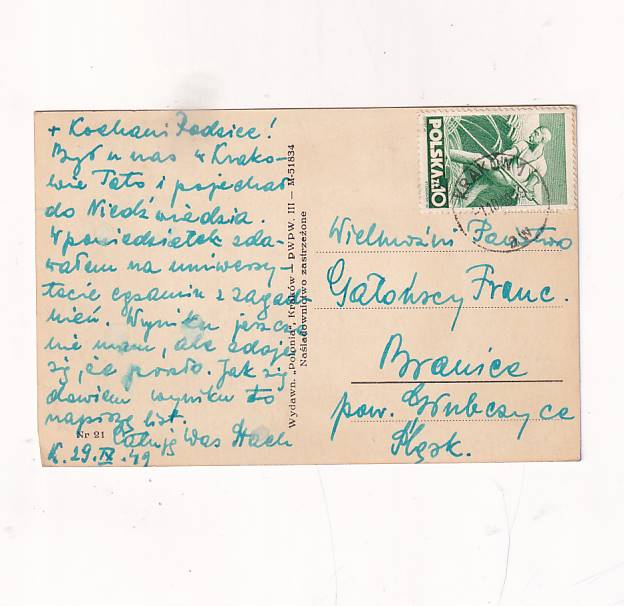 + Kochani Rodzice!
Był u nas w Krako-
wie Tato i pojechał
do Niedźwiedzia.
W poniedziałek zda-
wałem na uniwersy-
tecie egzamin z zagad-
nień. Wyniku jeszcze
nie mam, ale zdaje
się, że poszło. Jak się
dowiem wyniku to
napiszę list.
Całuję Was Stach
K. 29.IX.49
Nr 21
Wydawn. „Polonia", Kraków — PWPW. III — M-51834
Naśladownictwo zastrzeżone
POLSKA ZŁ 10
KRAKÓW
Wielmożni Państwo
Gałońscy Franc.
Branice
pow. Głubczyce
Śląsk.